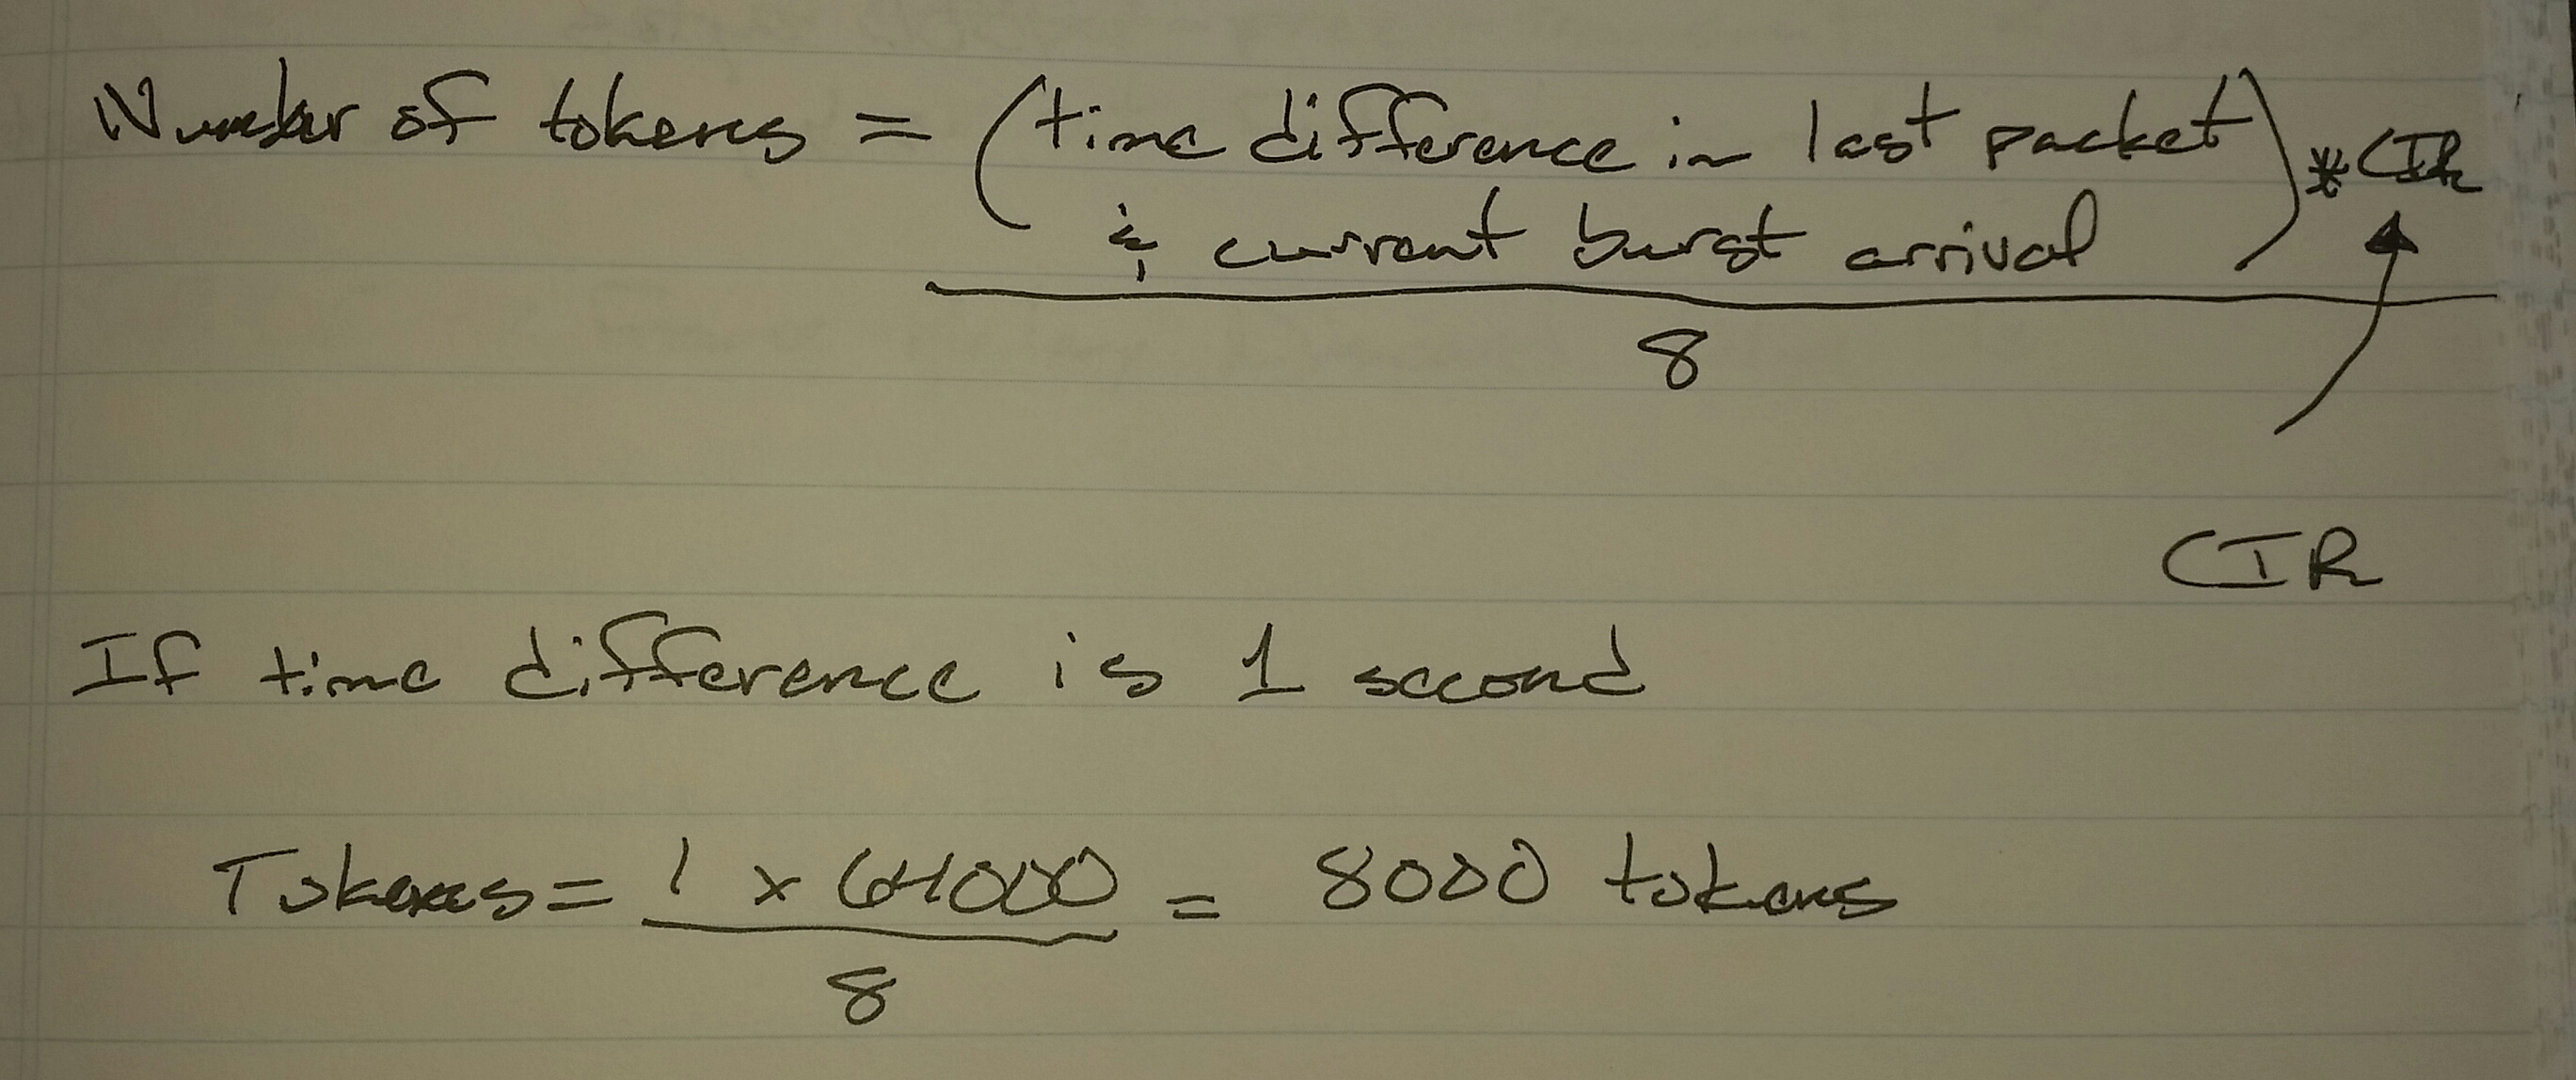 Number of tokens = (time difference in last packet) * CIR
& current burst arrival
8
CIR
If time difference is 1 second
Tokens = 1 x 64000 = 8000 tokens
8